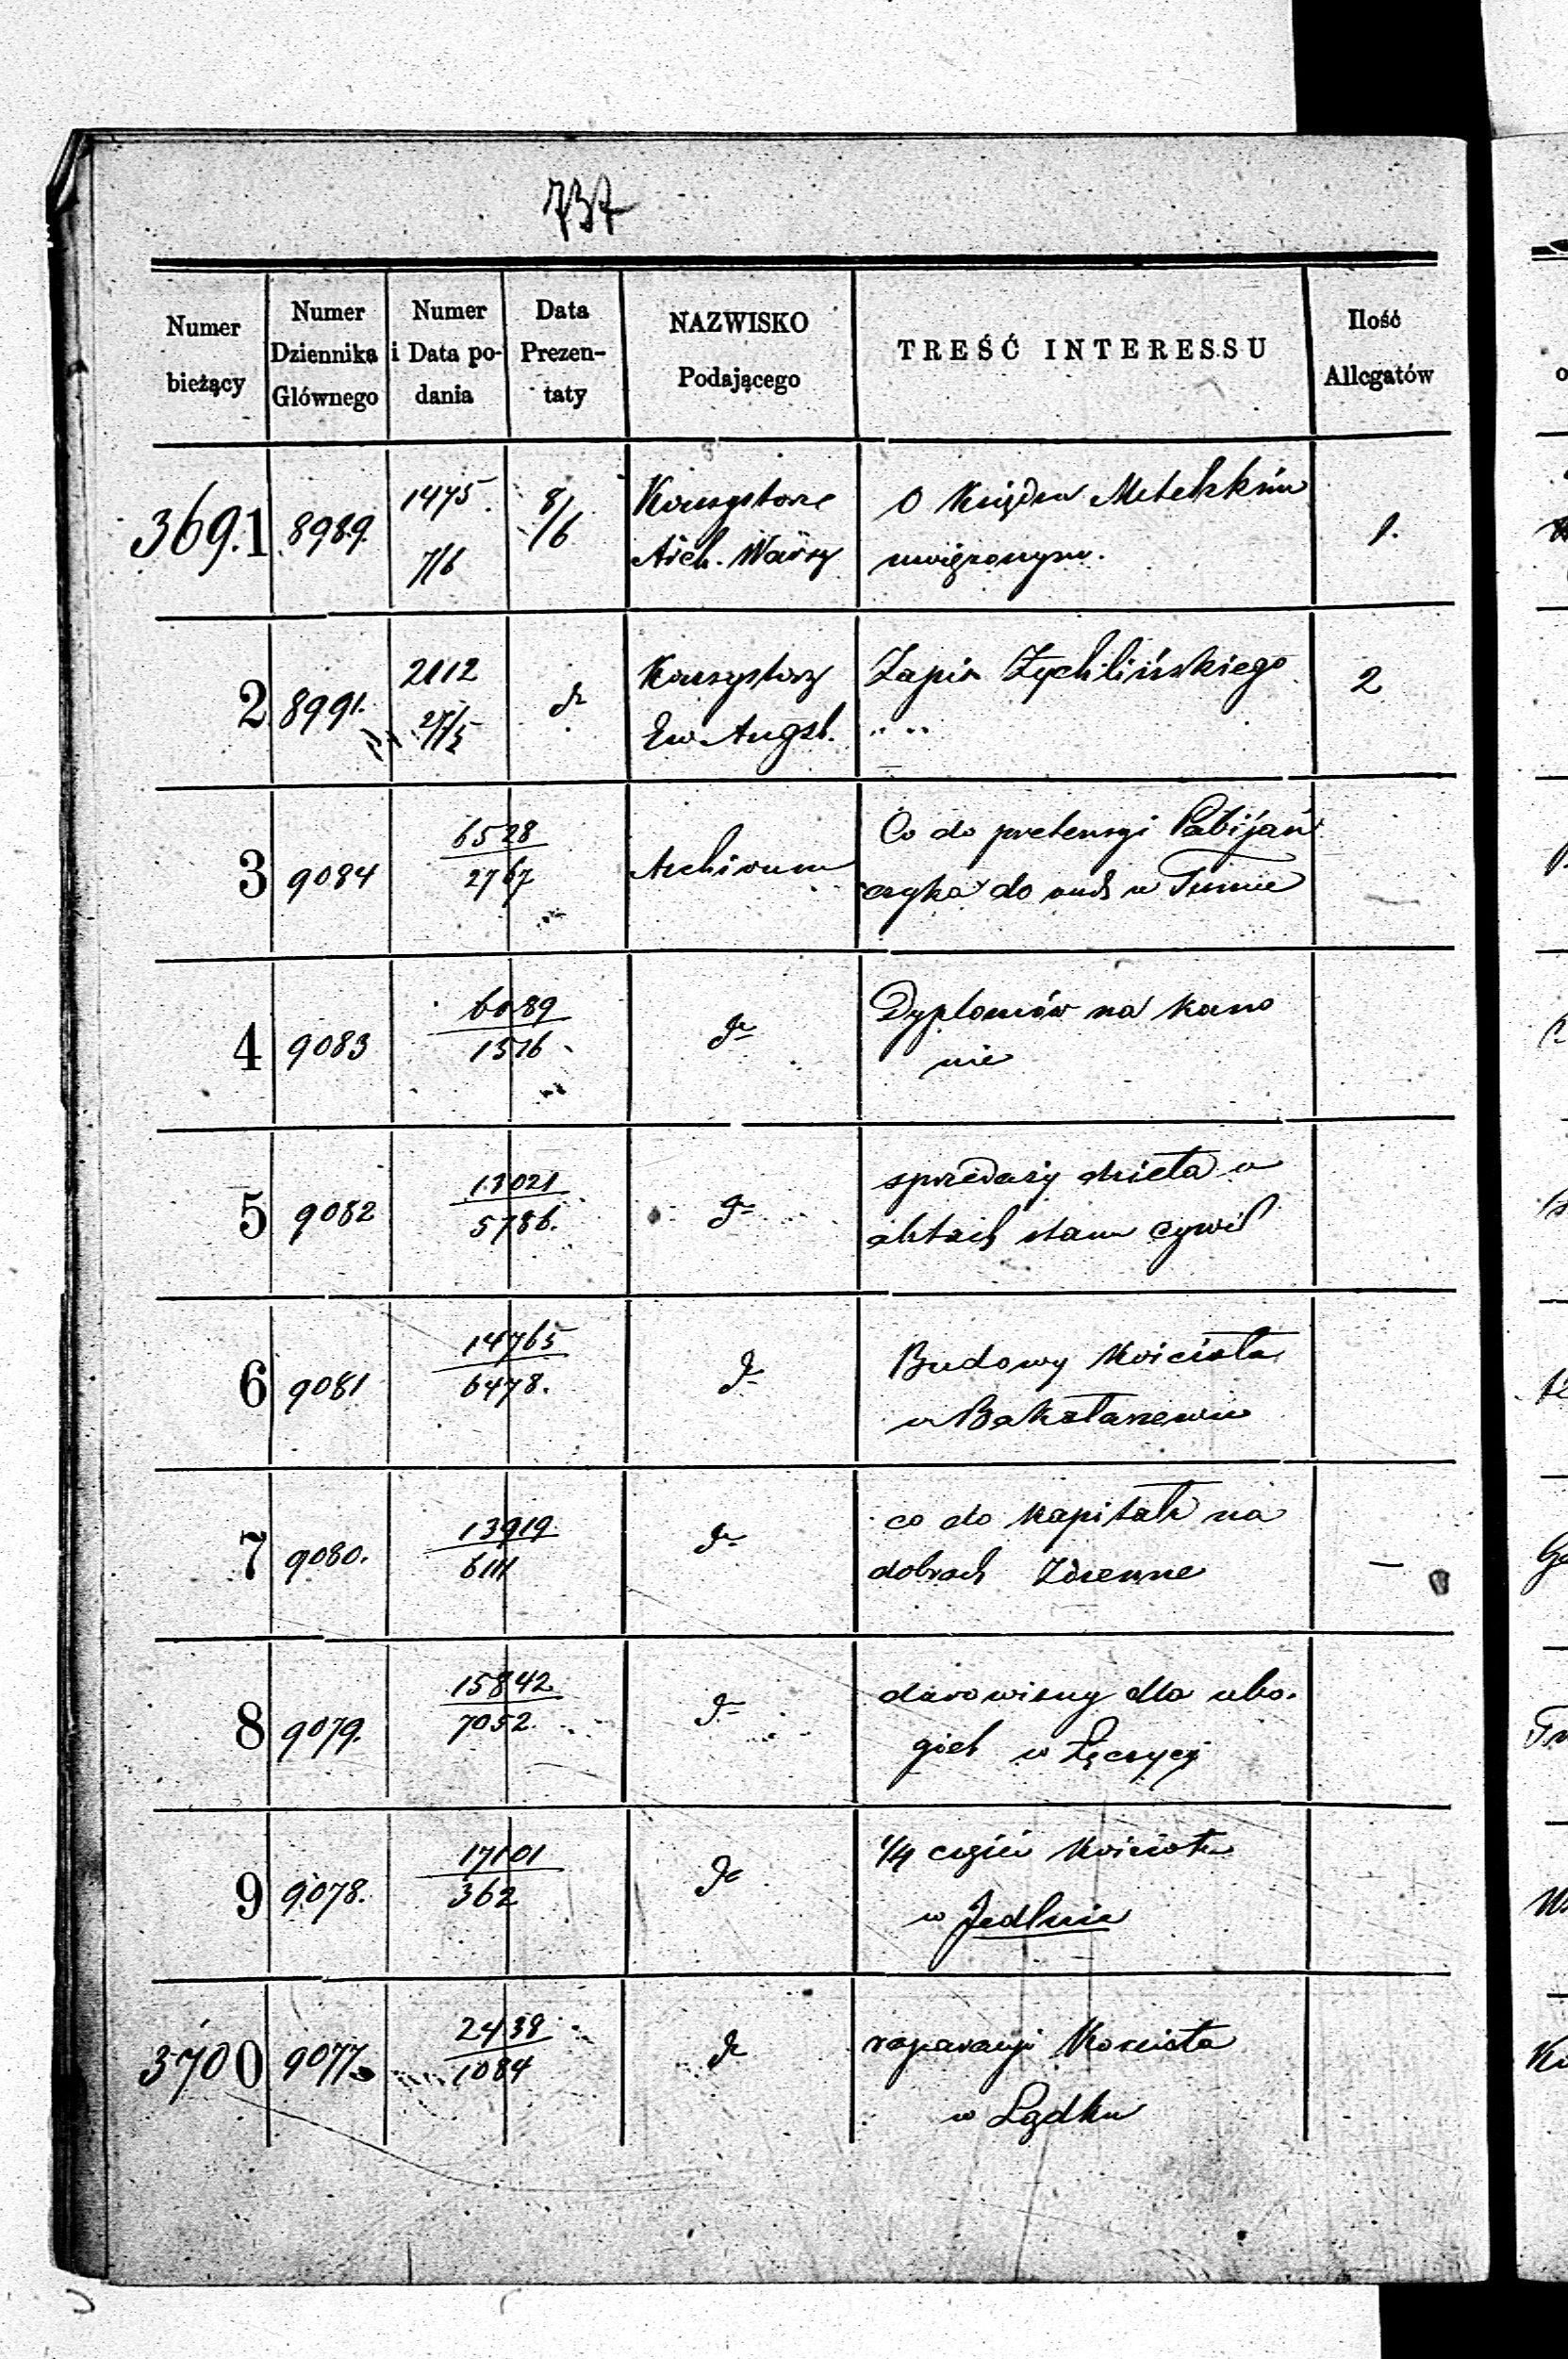 737
Numer bieżący
Numer Dziennika Głównego
Numer i Data podania
Data Prezentaty
NAZWISKO Podającego
TREŚĆ INTERESSU
Ilość Allegatów
3691 8989. 1475. 7/6 8/6 Konsystorz Arch. Warsz O Księdzu uwięzionym. 1.
2 8991. 2112 27/5 dr Konsystorz Ew. Augsb. Zapis Żychlińskiego 2
3 9084 6528 2767 Archivum Co do pretensyi Pabijań
czyka do w Tumie
4 9083 6089 1516 dr Dyplomów na kano
nie
5 9082 13021 5786. dr sprzedaży dzieła o
aktach stanu cywil
6 9081 14765 6478. dr Budowy Kościoła
w Bakałarzewie
7 9080. 13919. 6111 dr co do kapitału na
dobrach Zdzenne —
8 9079. 15842. 7052. dr darowizny dla ubo.
gich w Łęczycy
9 9078. 17101 362 dr 1/4 części Kościoła
w Jedlnie
3700 9077 2438 1084 dr reparacyi Kościoła
w Lądku